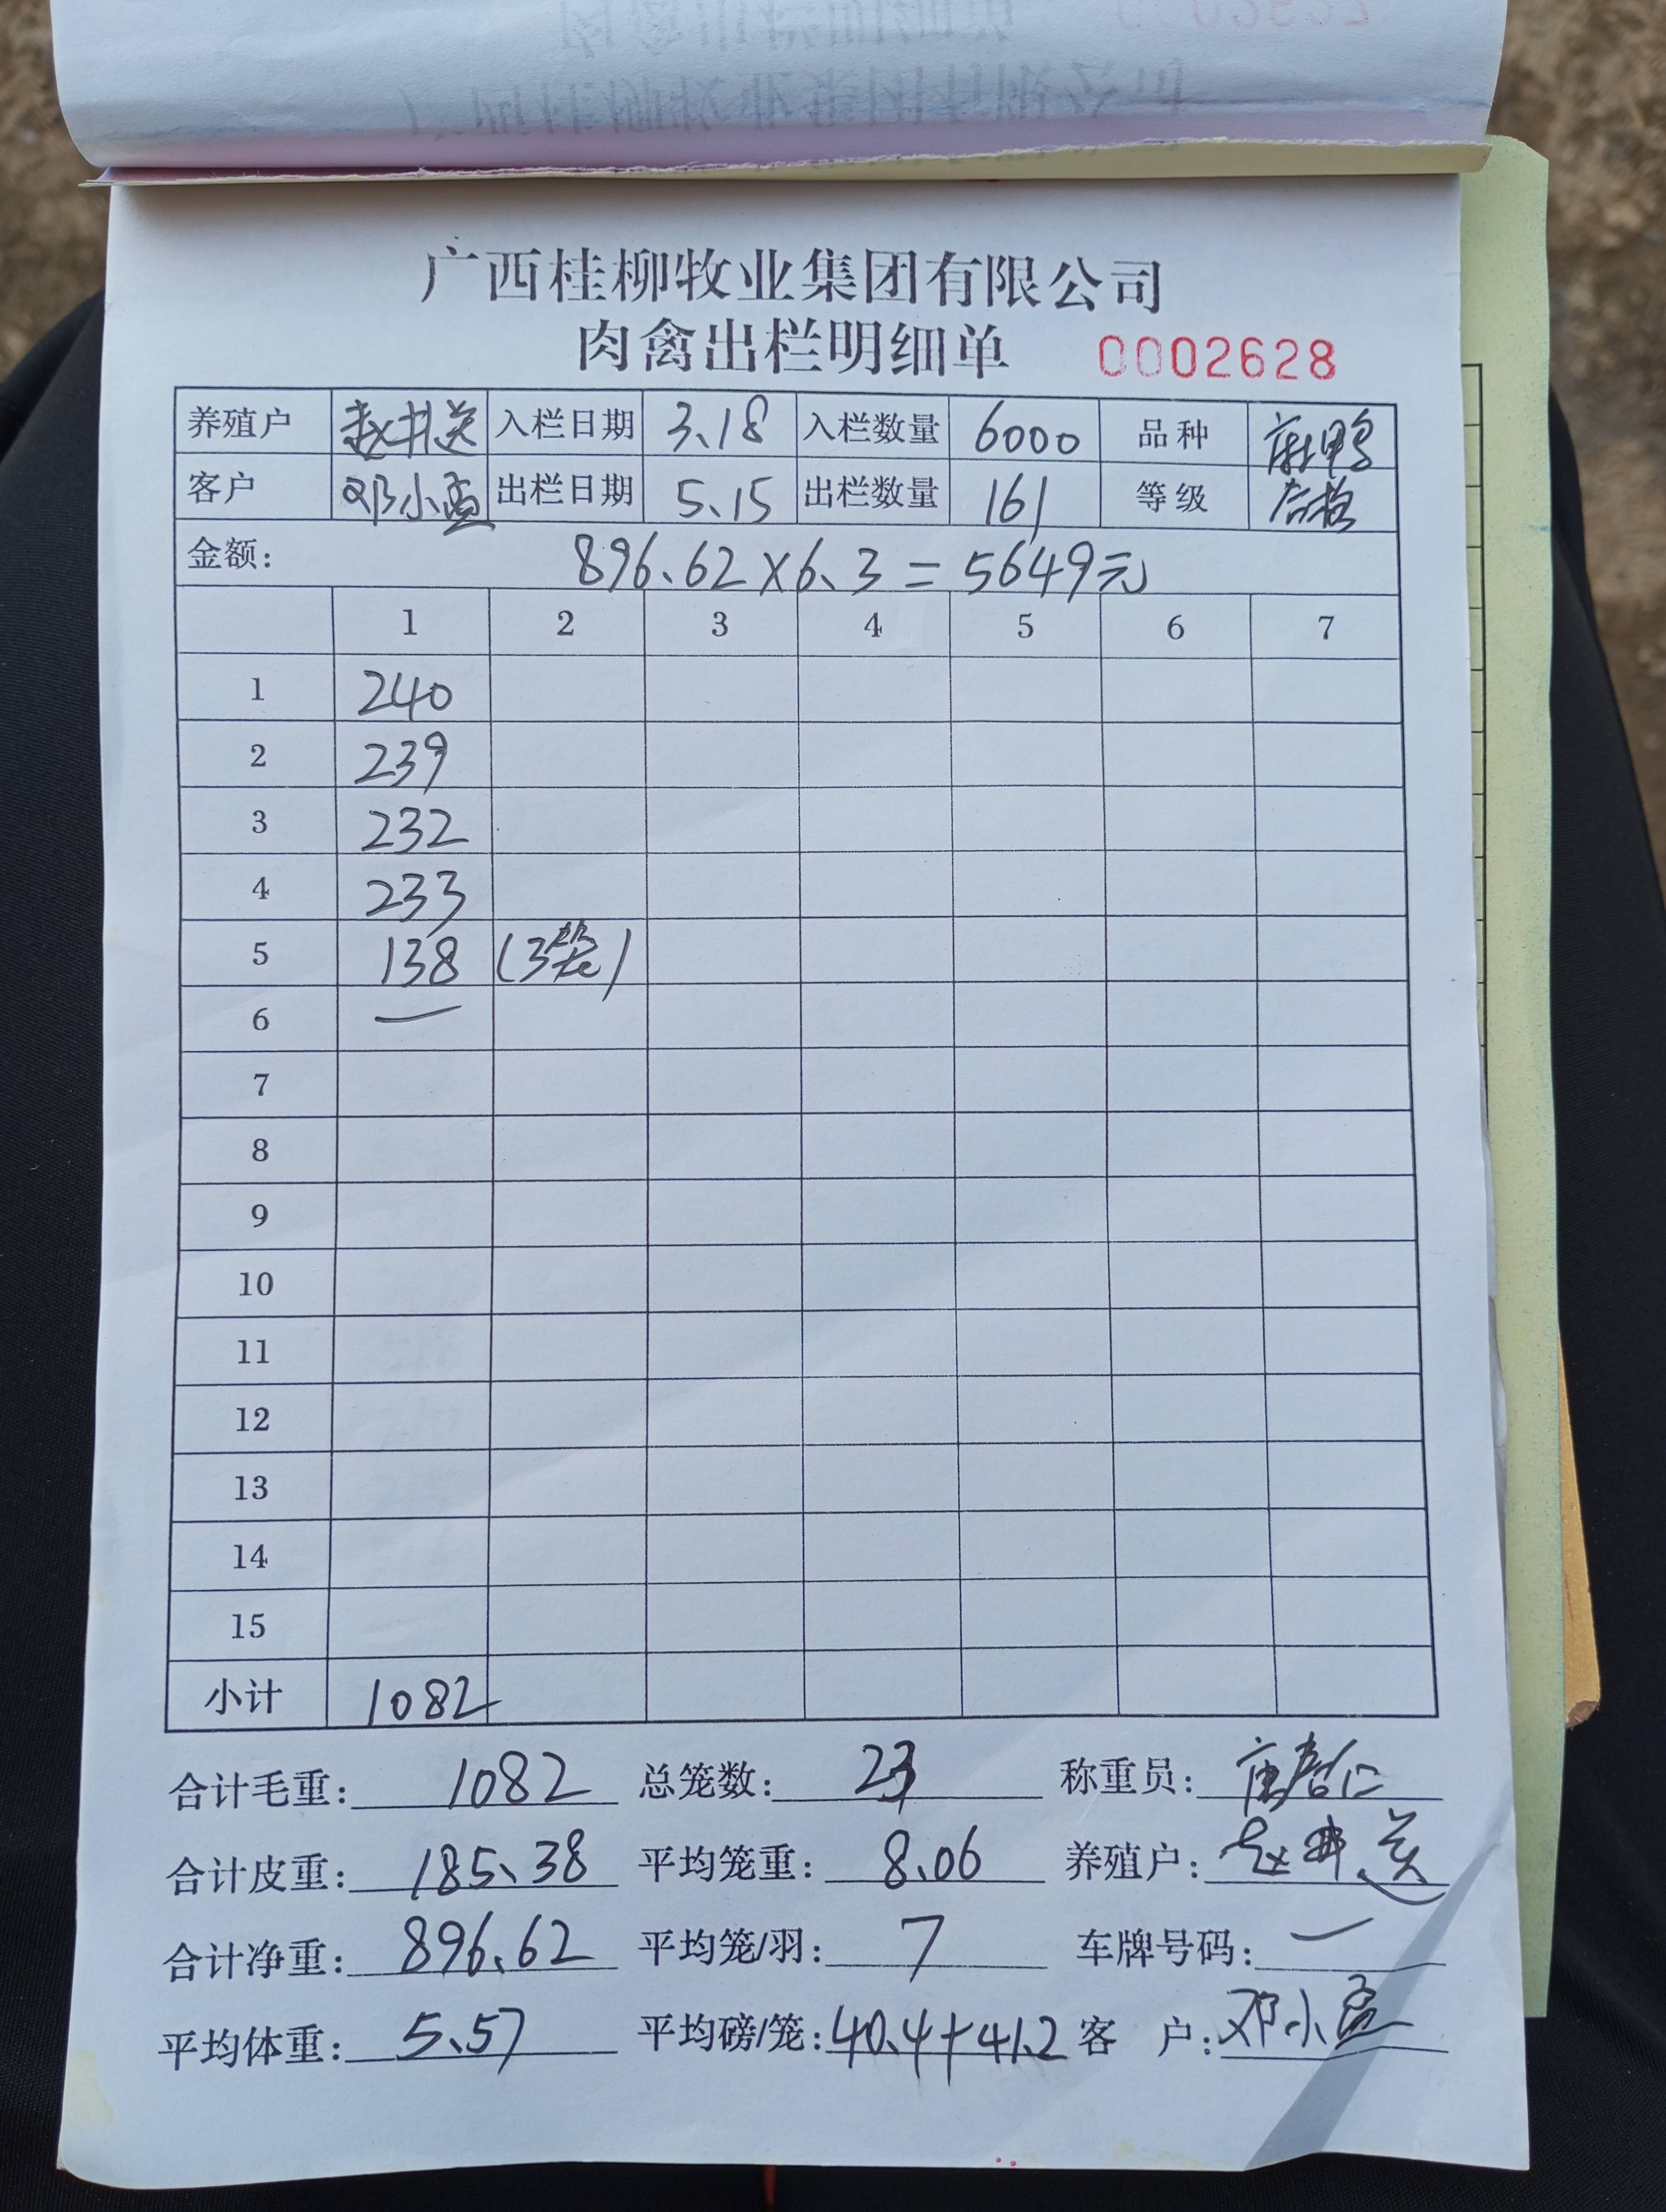 广西桂柳牧业集团有限公司
肉禽出栏明细单 0002628
养殖户 赵井送 入栏日期 3.18 入栏数量 6000 品种 麻鸭
客户 邓小 出栏日期 5.15 出栏数量 161 等级 合格
金额: 896.62×6.3=5649元
1 2 3 4 5 6 7
1 240
2 239
3 232
4 233
5 138 (3笼)
6 —
7
8
9
10
11
12
13
14
15
小计 1082
合计毛重: 1082 总笼数: 23 称重员:
合计皮重: 185.38 平均笼重: 8.06 养殖户: 赵井送
合计净重: 896.62 平均笼/羽: 7 车牌号码: —
平均体重: 5.57 平均磅/笼: 40.4+41.2 客 户: 邓小